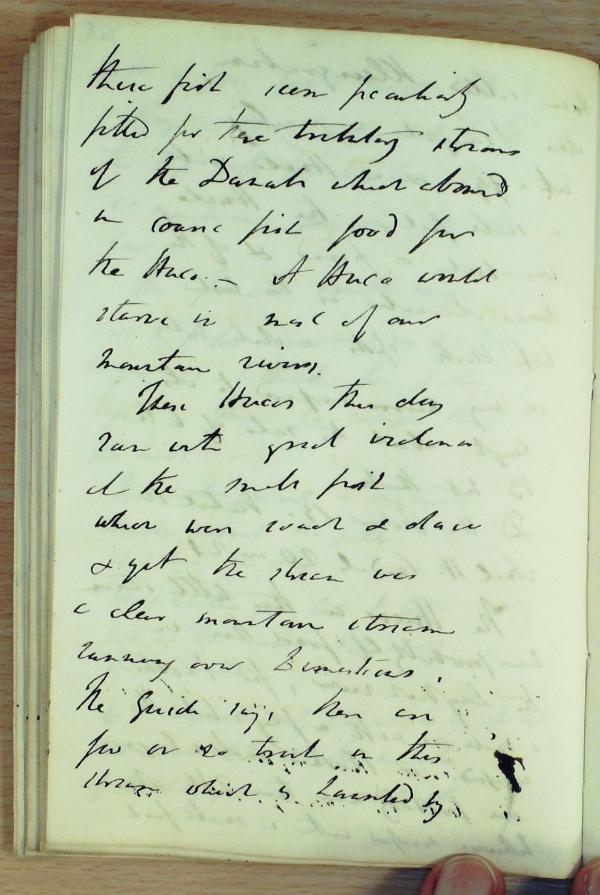 these fish seem peculiarly
fitted for these tributary streams
of the Danube which abound
in coarse fish food for
the Huco. — A Huco would
starve in most of our
mountain rivers.
These Hucos this day
ran with great violence
at the small fish
which were roach & dace
& yet the stream was
a clear mountain stream
running over Limestone.
The Guide says, there are
few or no trout in this
stream which is haunted by